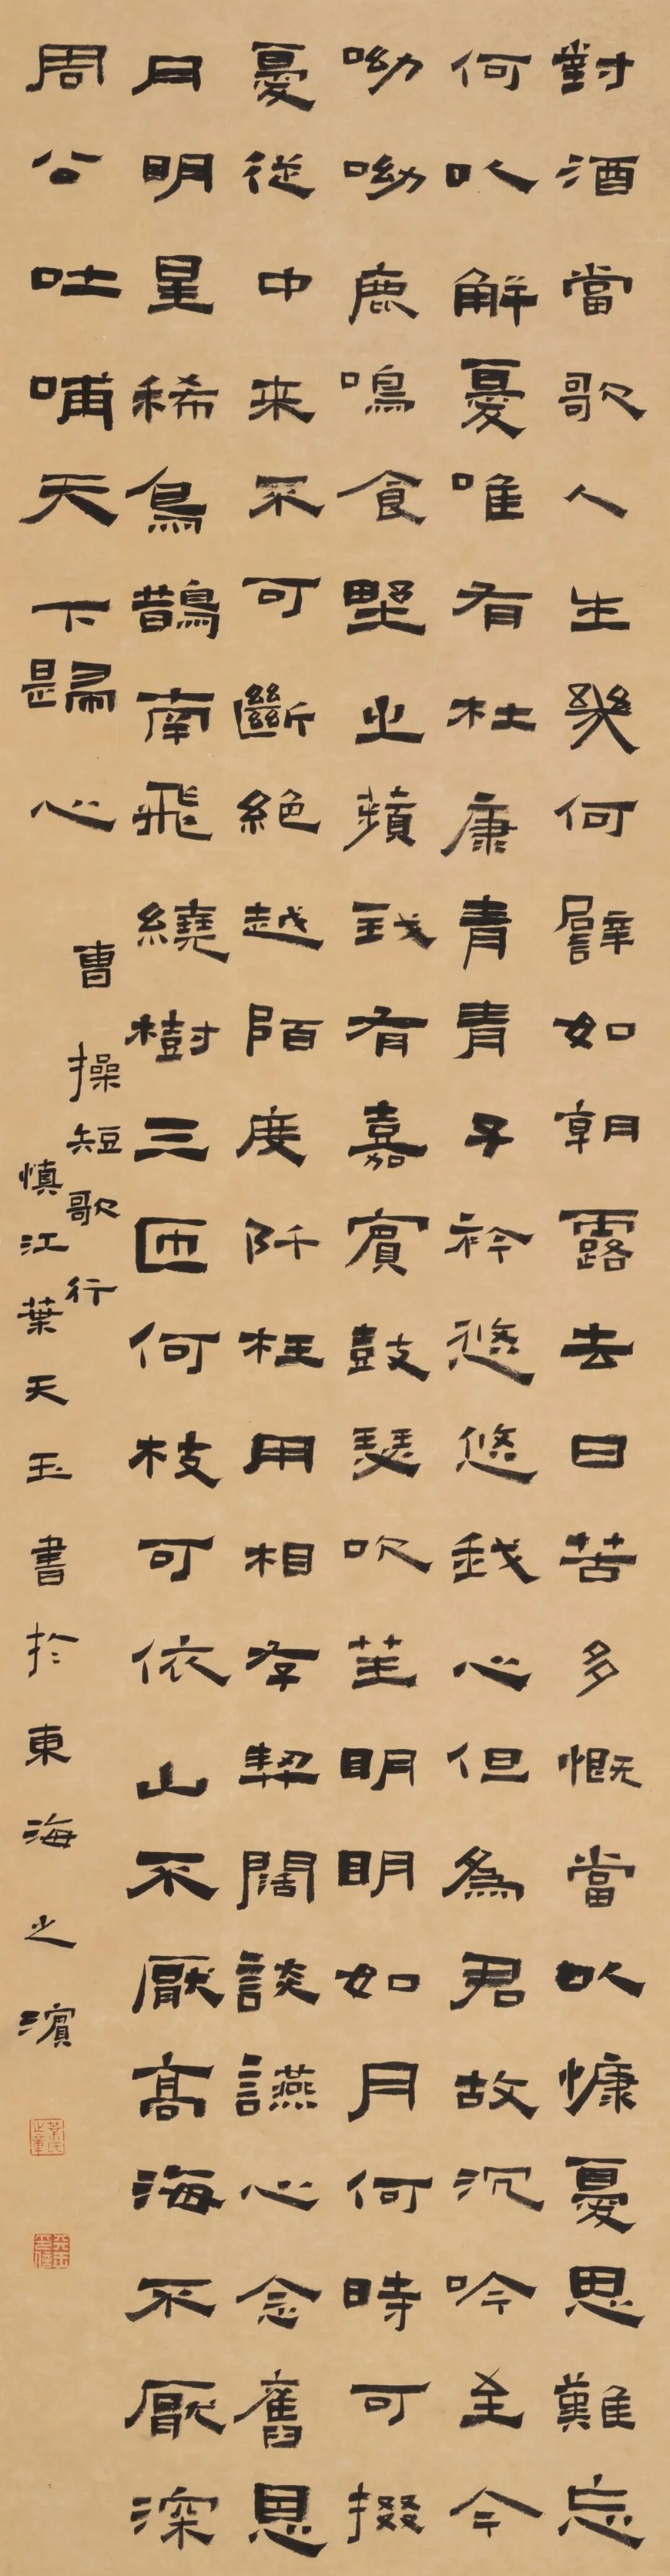 對酒當歌人生幾何譬如朝露去日苦多慨當以慷憂思難忘
何以解憂唯有杜康青青子衿悠悠我心但為君故沉吟至今
呦呦鹿鳴食野之蘋我有嘉賓鼓瑟吹笙明明如月何時可掇
憂從中来不可斷絕越陌度阡枉用相存契闊談讌心念舊恩
月明星稀烏鵲南飛繞樹三匝何枝可依山不厭高海不厭深
周公吐哺天下歸心
曹操短歌行
慎江葉天玉書於東海之濱
葉氏之章